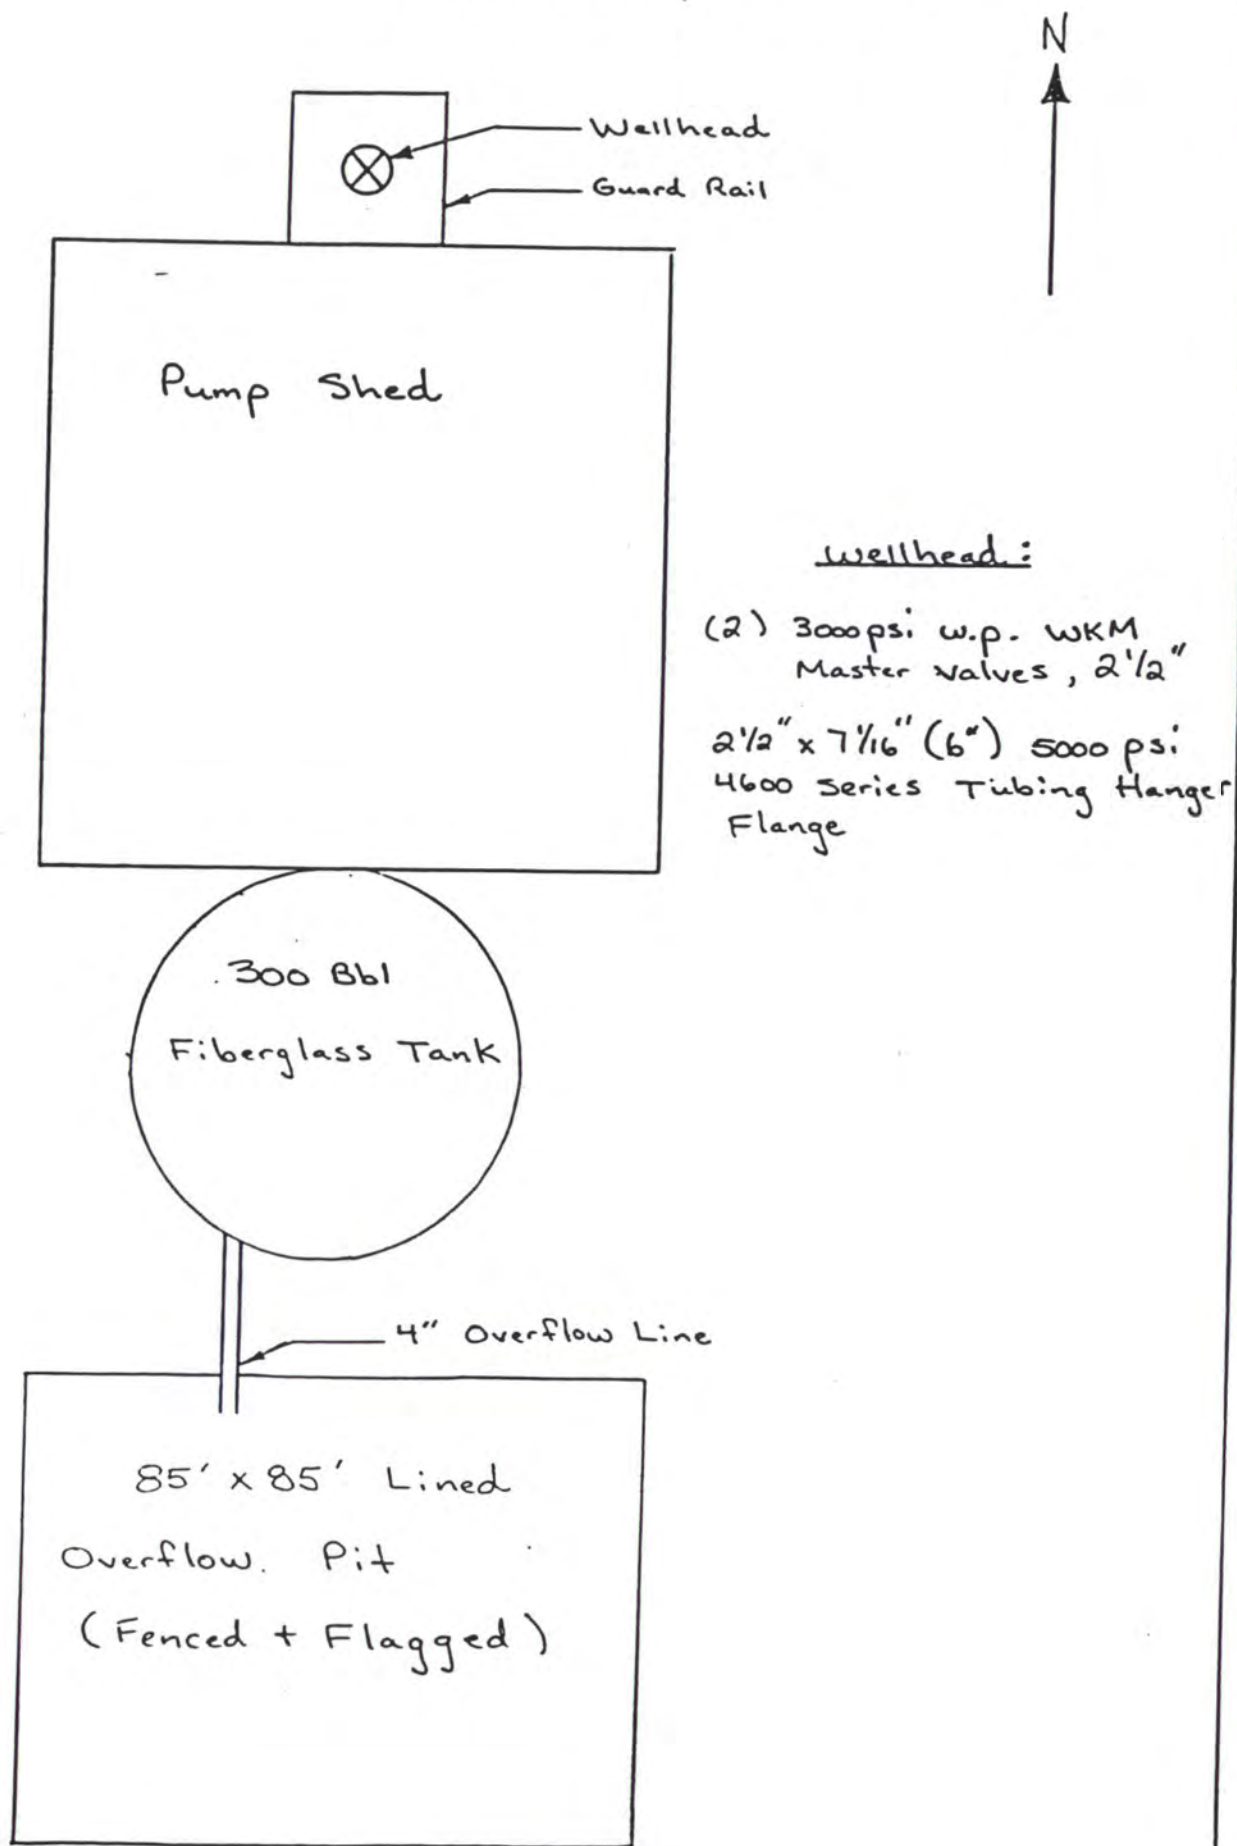 N
Wellhead
Guard Rail
Pump Shed
Wellhead:
(2) 3000 psi w.p. WKM
Master Valves, 2 1/2"
2 1/2" x 7 1/16" (6") 5000 psi
4600 Series Tubing Hanger
Flange
300 Bbl
Fiberglass Tank
4" Overflow Line
85' x 85' Lined
Overflow Pit
(Fenced + Flagged)